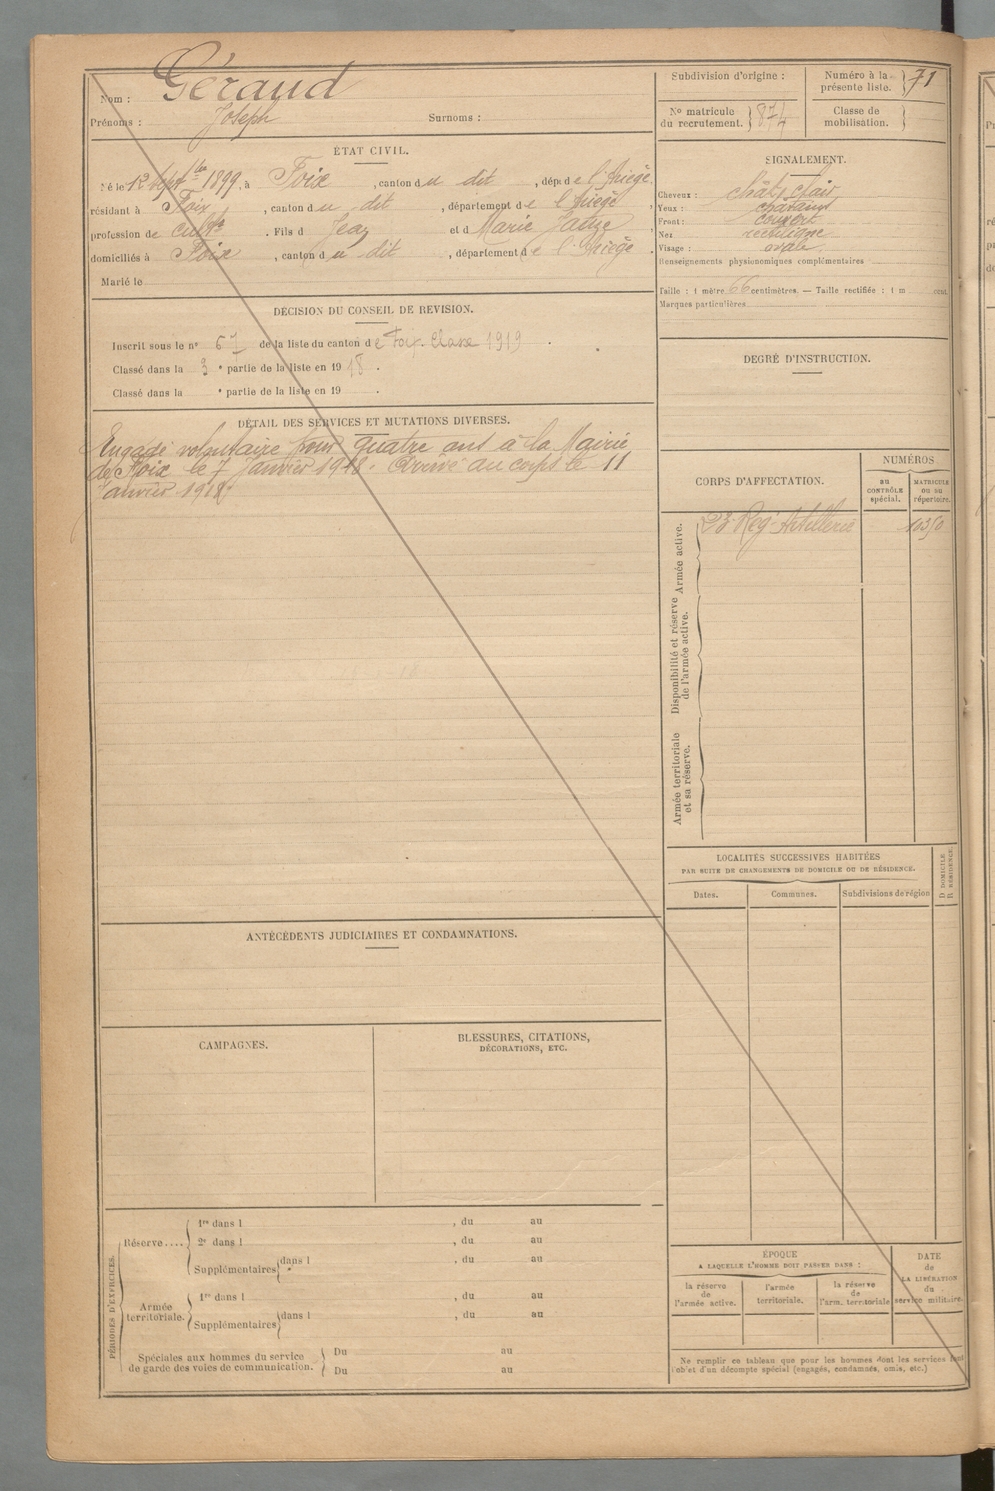 Nom : Géraud
Prénoms : Joseph Surnoms :
Subdivision d'origine :
Numéro à la présente liste. 71
No matricule du recrutement. 874
Classe de mobilisation.
ÉTAT CIVIL.
Né le 12 sept bre 1899, à Foix, canton du dit, dépt de l'Ariège,
résidant à Foix, canton du dit, département de l'Ariège,
profession de cultr. Fils d Jean et d Marie
domiciliés à Foix, canton du dit, département de l'Ariège
Marié le
SIGNALEMENT.
Cheveux : chât. clair
Yeux : châtains
Front : couvert
Nez rectiligne
Visage : ovale
Renseignements physionomiques complémentaires
Taille : 1 mètre 66 centimètres. — Taille rectifiée : 1 m cent.
Marques particulières
DÉCISION DU CONSEIL DE REVISION.
Inscrit sous le no 67 de la liste du canton de Foix. Classe 1919.
Classé dans la 3 e partie de la liste en 1918.
Classé dans la e partie de la liste en 19 .
DEGRÉ D'INSTRUCTION.
DÉTAIL DES SERVICES ET MUTATIONS DIVERSES.
Engagé volontaire pour quatre ans à la Mairie
de Foix le 7 janvier 1918. Arrivé au corps le 11
janvier 1918.
CORPS D'AFFECTATION.
NUMÉROS
au CONTRÔLE spécial.
MATRICULE ou au répertoire.
Armée active.
23e Reg' Artillerie 10350
Disponibilité et réserve de l'armée active.
Armée territoriale et sa réserve.
LOCALITÉS SUCCESSIVES HABITÉES
PAR SUITE DE CHANGEMENTS DE DOMICILE OU DE RÉSIDENCE.
Dates. Communes. Subdivisions de région
D DOMICILE
R RÉSIDENCE.
ANTÉCÉDENTS JUDICIAIRES ET CONDAMNATIONS.
CAMPAGNES.
BLESSURES, CITATIONS,
DÉCORATIONS, ETC.
PÉRIODES D'EXERCICES.
Réserve....
1re dans l , du au
2e dans l , du au
Supplémentaires dans l , du au
Armée territoriale.
1re dans l , du au
Supplémentaires dans l , du au
Spéciales aux hommes du service
de garde des voies de communication.
Du au
Du au
ÉPOQUE
A LAQUELLE L'HOMME DOIT PASSER DANS :
la réserve de l'armée active.
l'armée territoriale.
la réserve de l'arm. territoriale
DATE de LA LIBÉRATION du service militaire.
Ne remplir ce tableau que pour les hommes dont les services font
l'objet d'un décompte spécial (engagés, condamnés, omis, etc.)